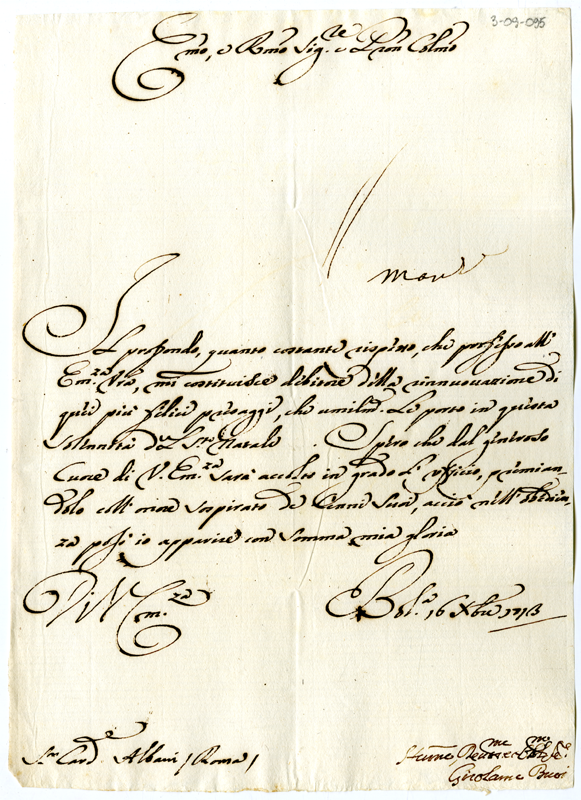 3-09-095
Emo, e Rmo Sig.re e Pron Colmo
Il profondo, quanto costante rispetto, che professo all'
Em.za Vra, mi costituisce debitore della rinnovazione di
quei più felici presagi, che umilm. Le porto in questa
solennità del S.mo Natale. Spero che dal generoso
Cuore di V. Em.za sarà accolto in grado l'ufficio, premian-
dolo coll'onore sospirato de' Cenni suoi, acciò nell'obbedien-
za possi io apparire con somma mia gloria
Di V. Em.za
Bol.a 16 Xbre 1713
Sr. Card.e Albani / Roma /
Girolamo